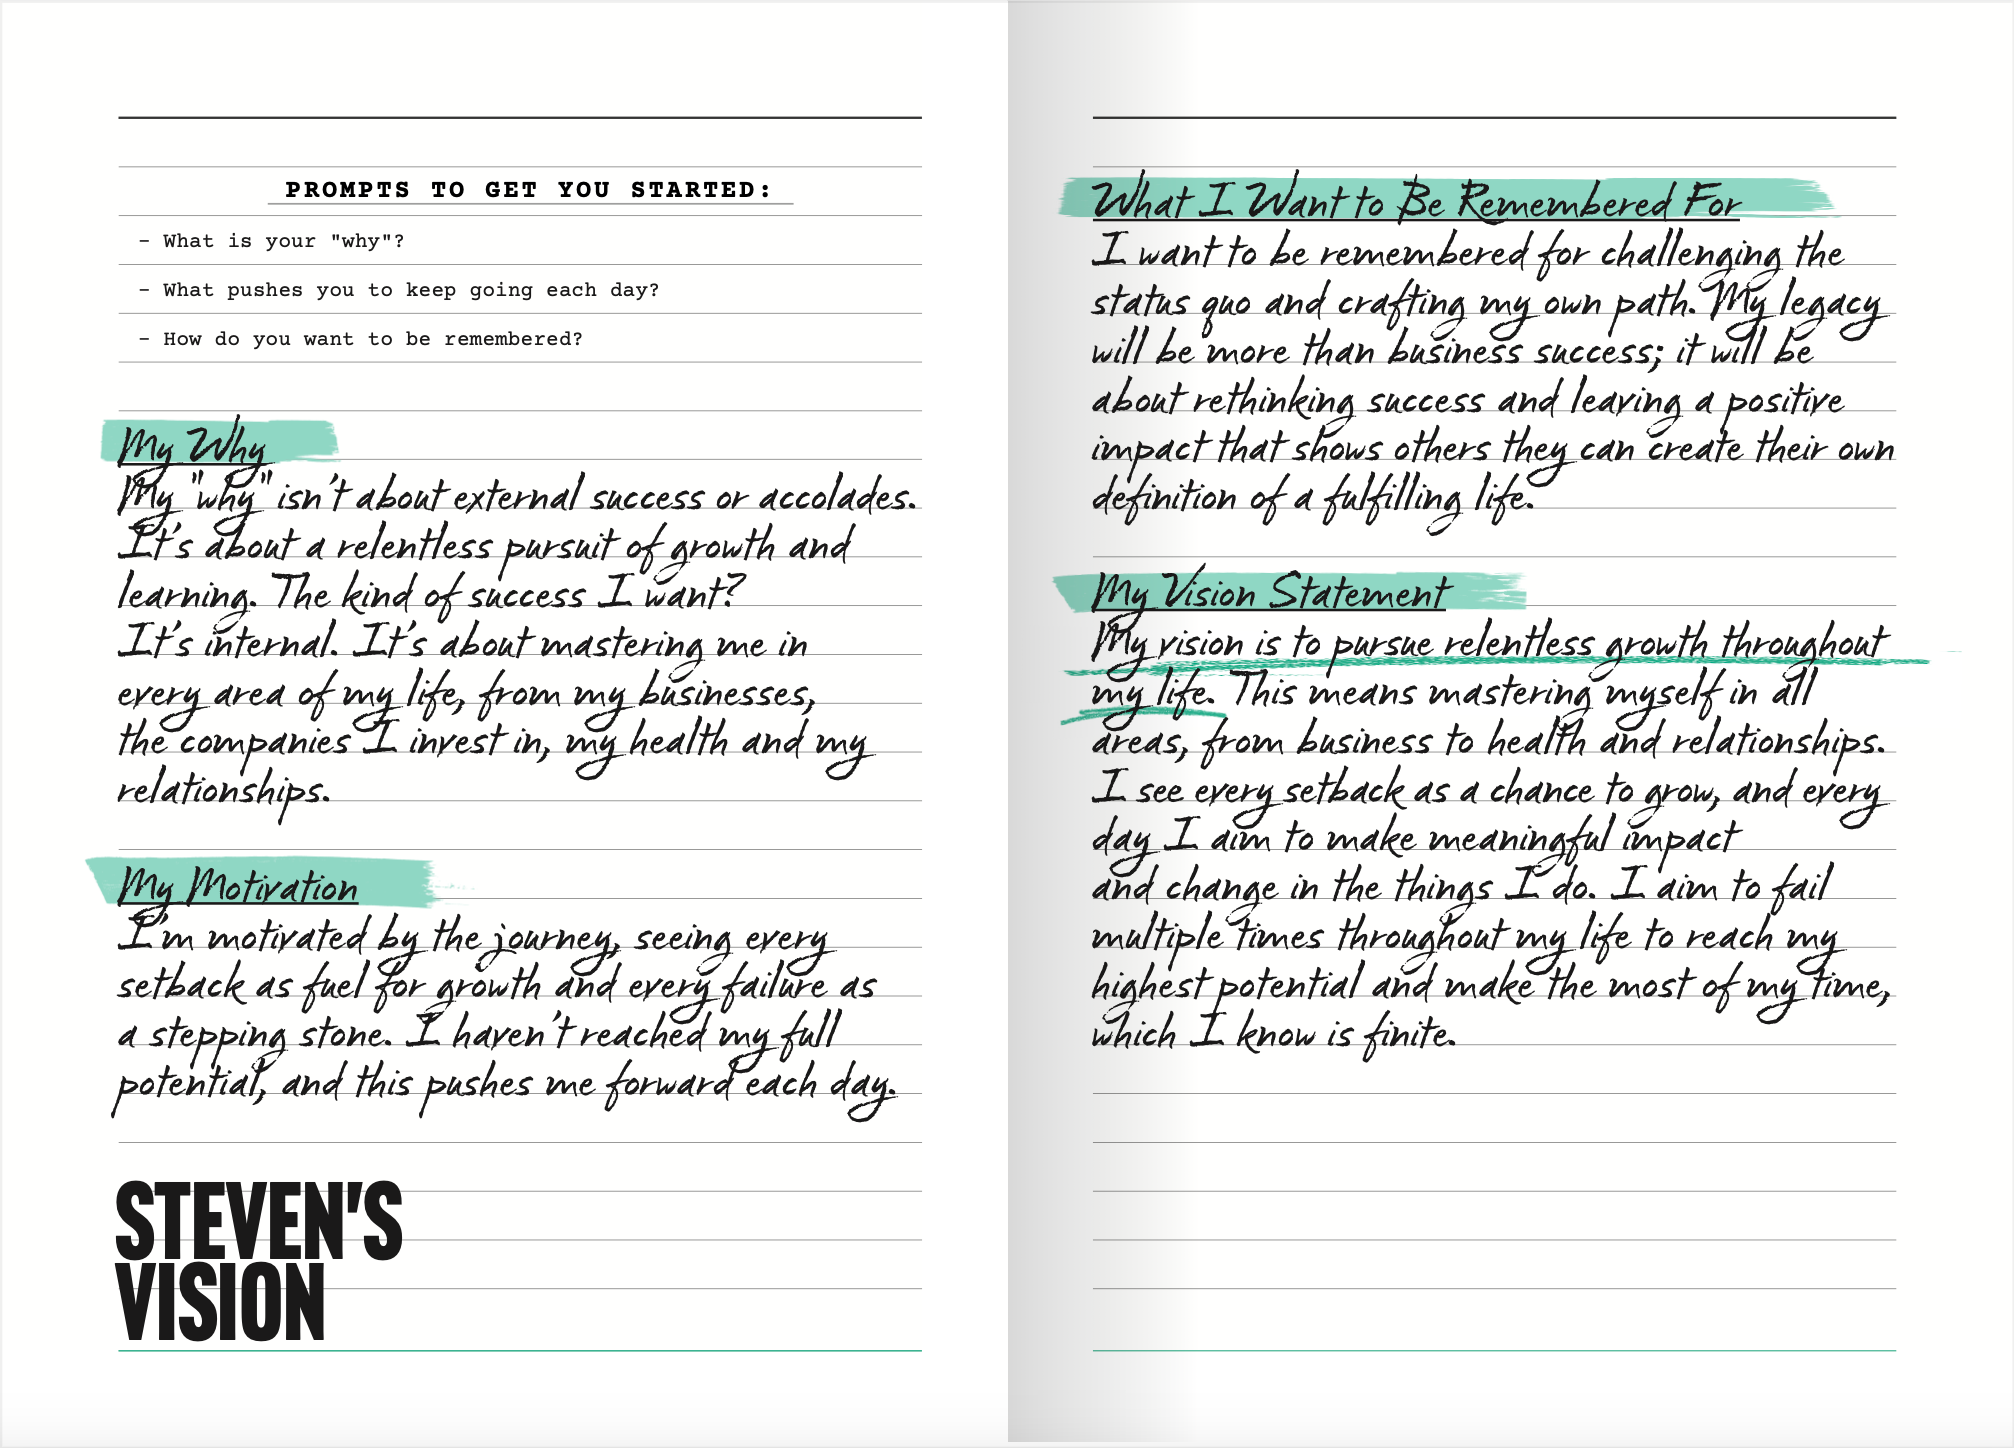 PROMPTS TO GET YOU STARTED:
- What is your "why"?
- What pushes you to keep going each day?
- How do you want to be remembered?
My Why
My "why" isn't about external success or accolades.
It's about a relentless pursuit of growth and
learning. The kind of success I want?
It's internal. It's about mastering me in
every area of my life, from my businesses,
the companies I invest in, my health and my
relationships.
My Motivation
I'm motivated by the journey, seeing every
setback as fuel for growth and every failure as
a stepping stone. I haven't reached my full
potential, and this pushes me forward each day.
STEVEN'S
VISION
What I Want to Be Remembered For
I want to be remembered for challenging the
status quo and crafting my own path. My legacy
will be more than business success; it will be
about rethinking success and leaving a positive
impact that shows others they can create their own
definition of a fulfilling life.
My Vision Statement
My vision is to pursue relentless growth throughout
my life. This means mastering myself in all
areas, from business to health and relationships.
I see every setback as a chance to grow, and every
day I aim to make meaningful impact
and change in the things I do. I aim to fail
multiple times throughout my life to reach my
highest potential and make the most of my time,
which I know is finite.